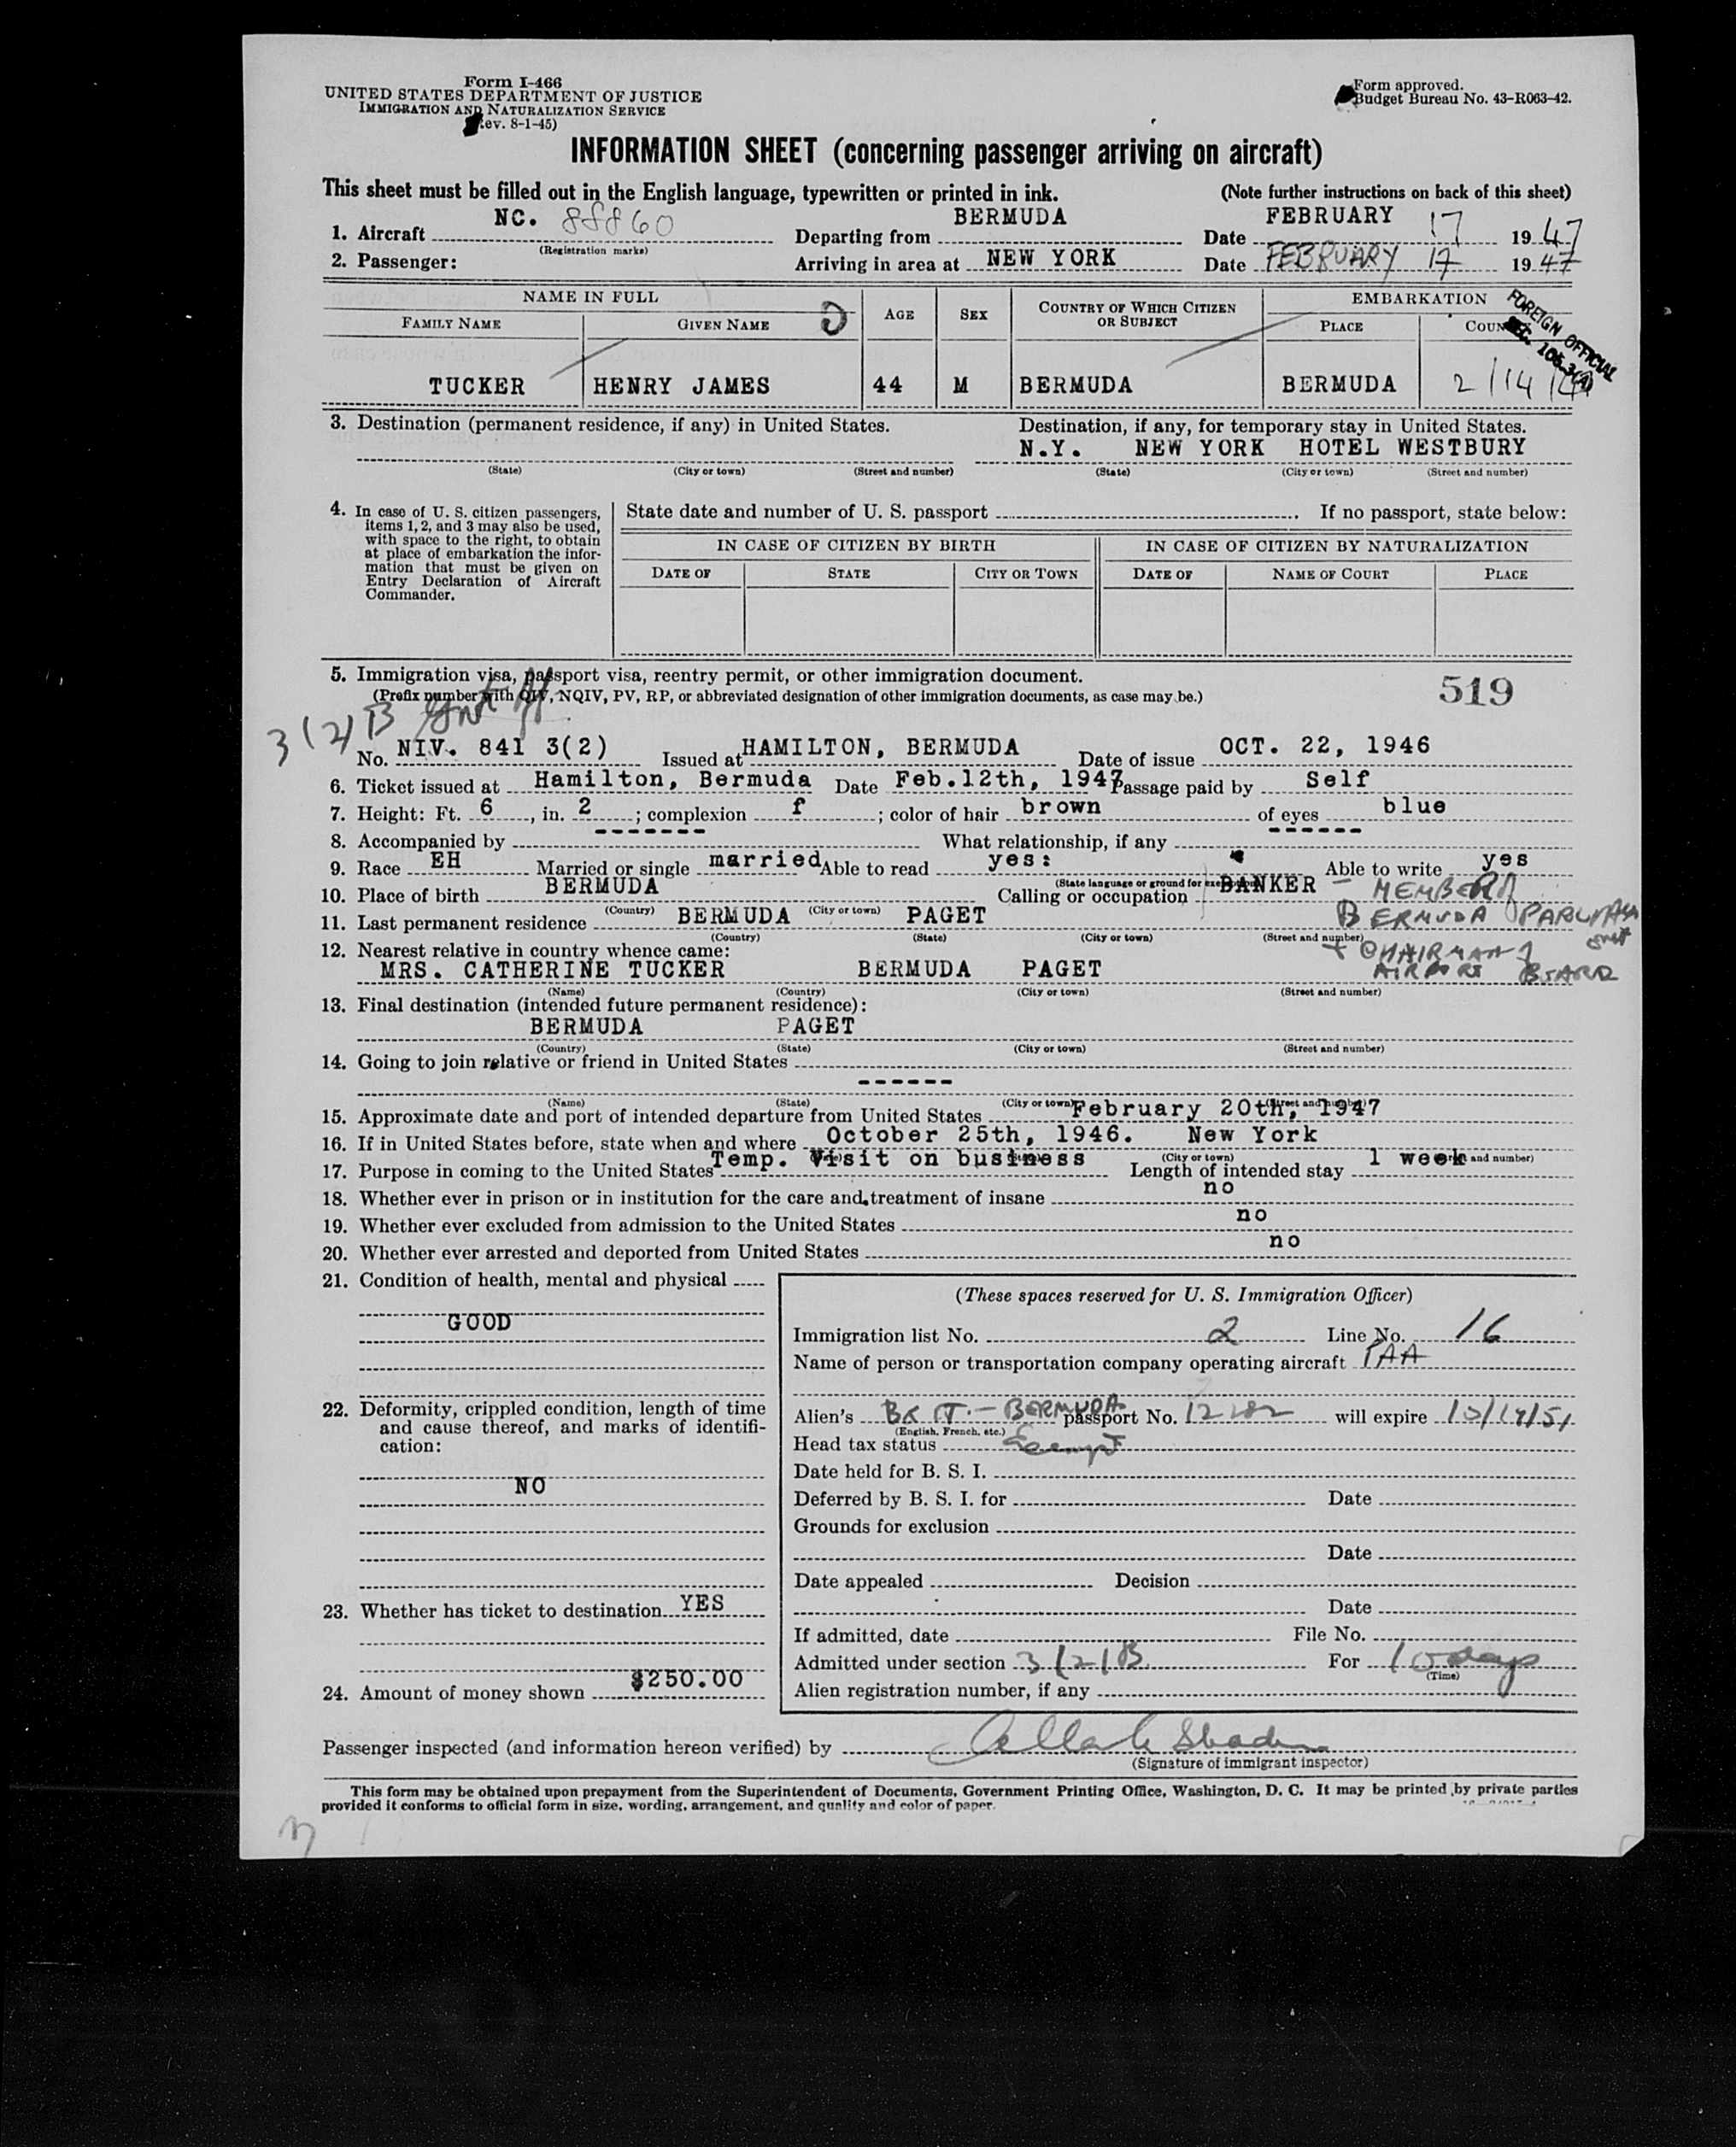 Form I-466
UNITED STATES DEPARTMENT OF JUSTICE
IMMIGRATION AND NATURALIZATION SERVICE
ev. 8-1-45)
Form approved.
Budget Bureau No. 43-R063-42.
INFORMATION SHEET (concerning passenger arriving on aircraft)
This sheet must be filled out in the English language, typewritten or printed in ink. (Note further instructions on back of this sheet)
1. Aircraft NC. 88860 Departing from BERMUDA Date FEBRUARY 17 1947
(Registration marks)
2. Passenger: Arriving in area at NEW YORK Date FEBRUARY 17 1947
NAME IN FULL AGE SEX COUNTRY OF WHICH CITIZEN OR SUBJECT EMBARKATION
FAMILY NAME GIVEN NAME PLACE COUN
FOREIGN OFFICIAL
TUCKER HENRY JAMES 44 M BERMUDA BERMUDA 2/14/
3. Destination (permanent residence, if any) in United States. Destination, if any, for temporary stay in United States.
N.Y. NEW YORK HOTEL WESTBURY
(State) (City or town) (Street and number) (State) (City or town) (Street and number)
4. In case of U. S. citizen passengers, items 1, 2, and 3 may also be used, with space to the right, to obtain at place of embarkation the information that must be given on Entry Declaration of Aircraft Commander.
State date and number of U. S. passport . If no passport, state below:
IN CASE OF CITIZEN BY BIRTH IN CASE OF CITIZEN BY NATURALIZATION
DATE OF STATE CITY OR TOWN DATE OF NAME OF COURT PLACE
5. Immigration visa, passport visa, reentry permit, or other immigration document.
(Prefix number with QIV, NQIV, PV, RP, or abbreviated designation of other immigration documents, as case may be.)
519
3(2)B
No. NIV. 841 3(2) Issued at HAMILTON, BERMUDA Date of issue OCT. 22, 1946
6. Ticket issued at Hamilton, Bermuda Date Feb.12th, 1947 Passage paid by Self
7. Height: Ft. 6, in. 2; complexion f; color of hair brown of eyes blue
8. Accompanied by ------- What relationship, if any ------
9. Race EH Married or single married Able to read yes: Able to write yes
(State language or ground for exemption)
10. Place of birth BERMUDA Calling or occupation BANKER - MEMBER OF
(Country) (City or town)
BERMUDA PARLIAMENT
11. Last permanent residence BERMUDA PAGET
(Country) (State) (City or town) (Street and number)
+ CHAIRMAN OF
AIRPORT BOARD
12. Nearest relative in country whence came:
MRS. CATHERINE TUCKER BERMUDA PAGET
(Name) (Country) (City or town) (Street and number)
13. Final destination (intended future permanent residence):
BERMUDA PAGET
(Country) (State) (City or town) (Street and number)
14. Going to join relative or friend in United States
------
(Name) (State) (City or town) (Street and number)
15. Approximate date and port of intended departure from United States February 20th, 1947
16. If in United States before, state when and where October 25th, 1946. New York
(City or town) and number)
17. Purpose in coming to the United States Temp. Visit on business Length of intended stay 1 week
18. Whether ever in prison or in institution for the care and treatment of insane no
19. Whether ever excluded from admission to the United States no
20. Whether ever arrested and deported from United States no
21. Condition of health, mental and physical
GOOD
22. Deformity, crippled condition, length of time and cause thereof, and marks of identification:
NO
23. Whether has ticket to destination YES
24. Amount of money shown $250.00
(These spaces reserved for U. S. Immigration Officer)
Immigration list No. 2 Line No. 16
Name of person or transportation company operating aircraft PAA
Alien's BRIT.-BERMUDA passport No. will expire
(English, French, etc.)
Head tax status Exempt
Date held for B. S. I.
Deferred by B. S. I. for Date
Grounds for exclusion
Date
Date appealed Decision
Date
If admitted, date File No.
Admitted under section 3(2)B For 10 days
(Time)
Alien registration number, if any
Passenger inspected (and information hereon verified) by
(Signature of immigrant inspector)
This form may be obtained upon prepayment from the Superintendent of Documents, Government Printing Office, Washington, D. C. It may be printed by private parties
provided it conforms to official form in size, wording, arrangement, and quality and color of paper.